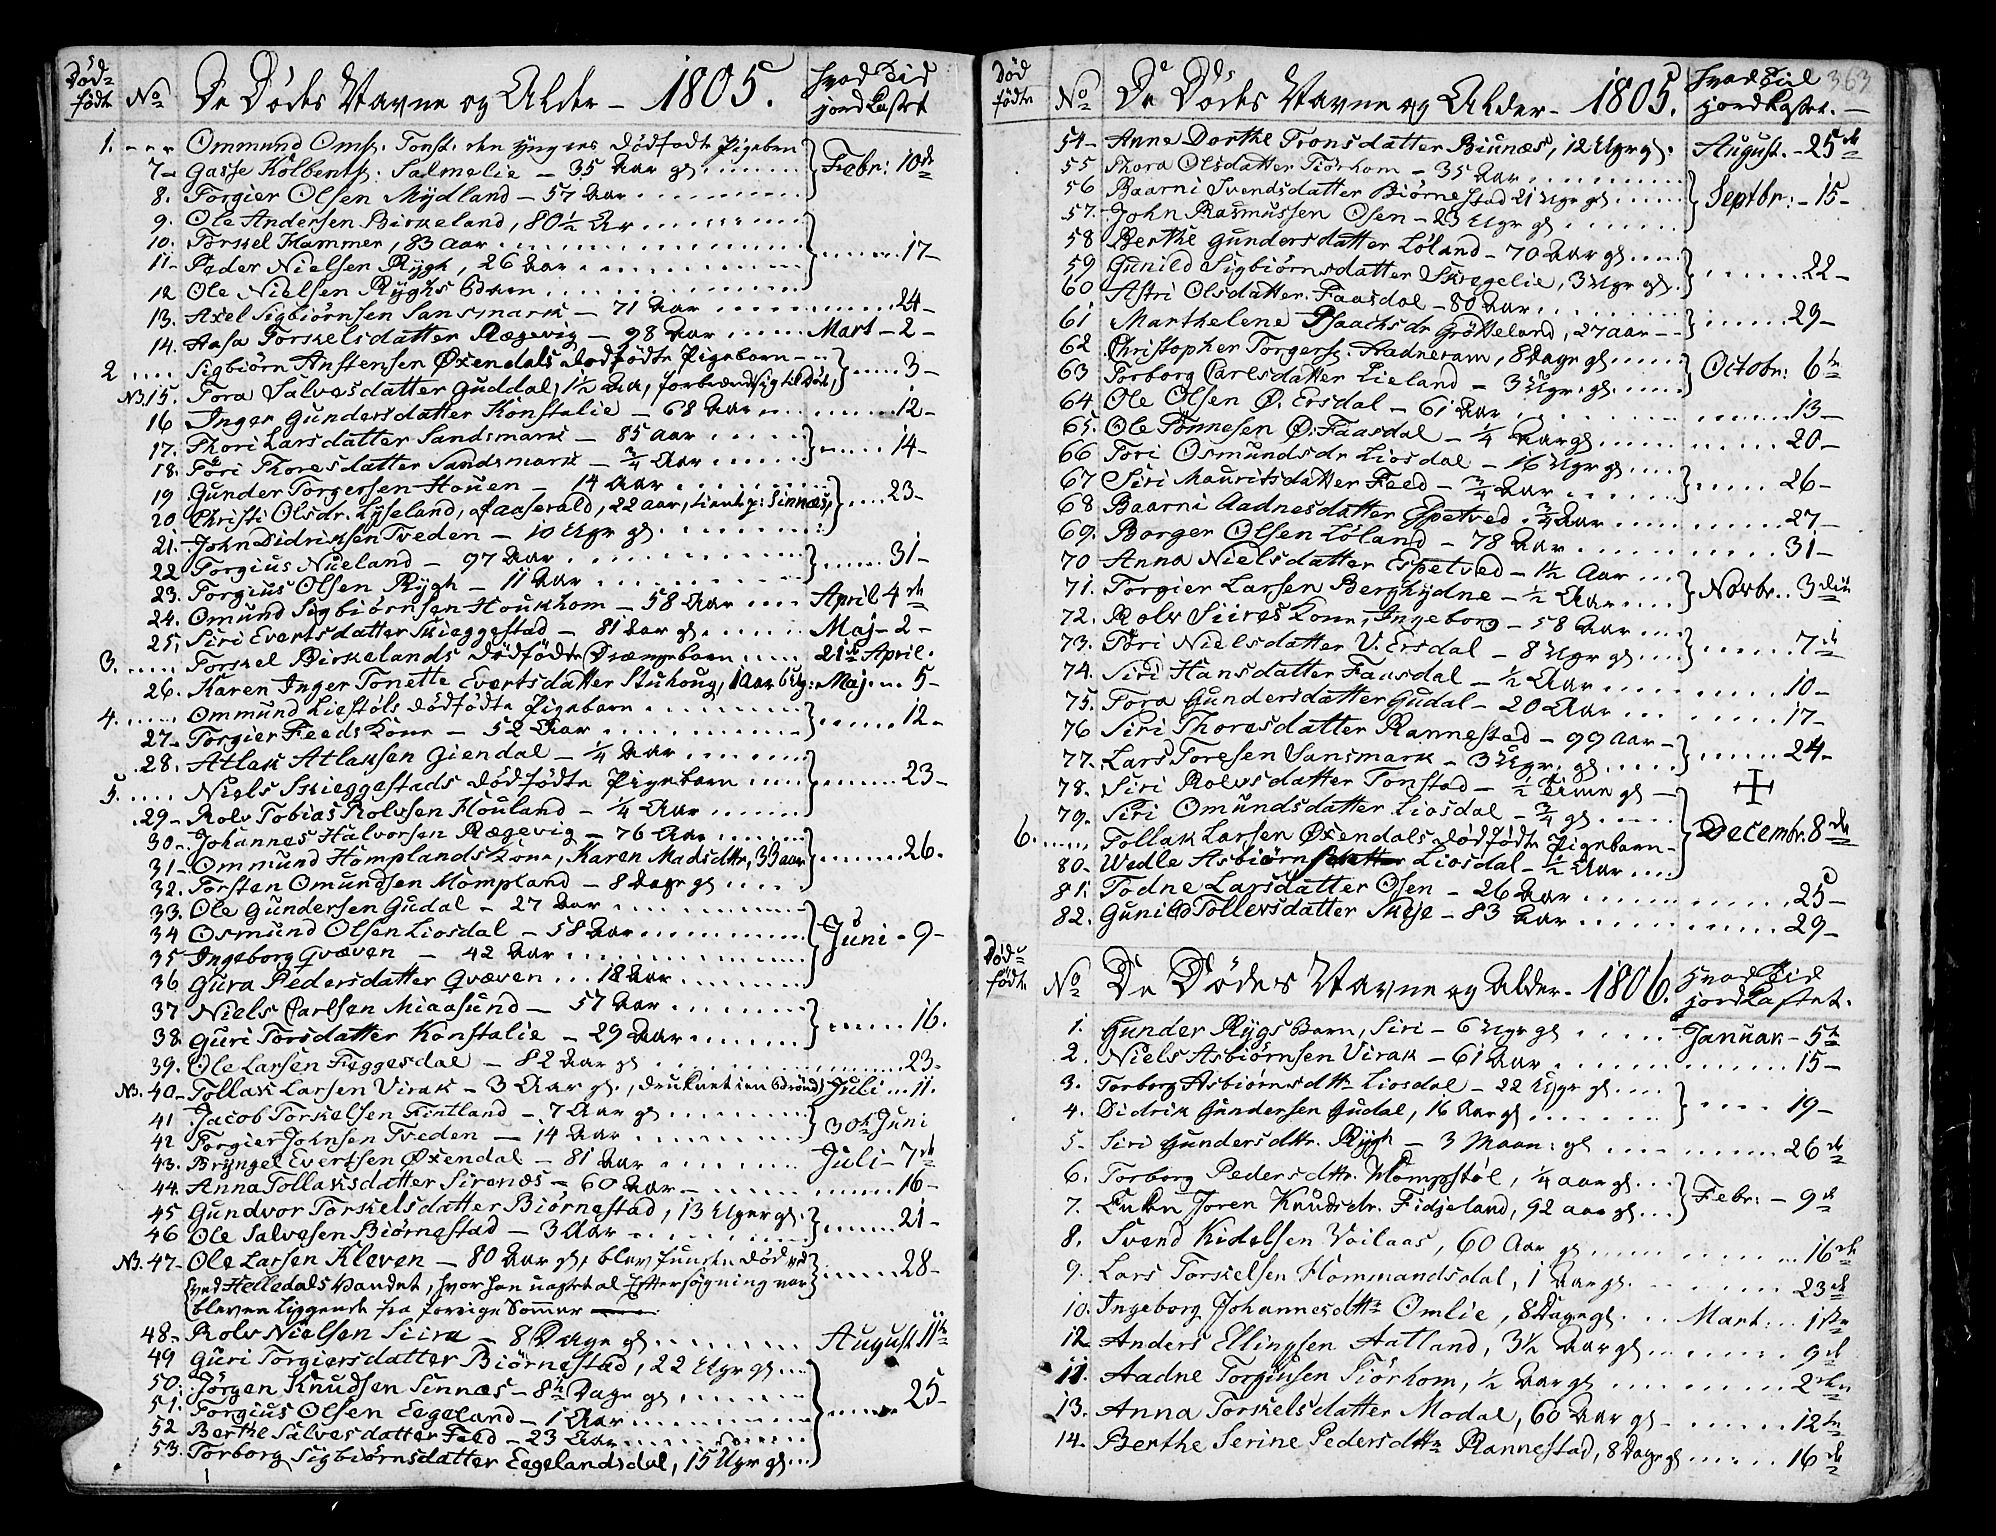 Død=
fødte No De Dødes Navne og Alder - 1805. Hvad Tid
jordkastet
1. - - - Ommund Oms: Tonst: den yngres dødfødte Pigebarn
7 - Gasse Kolbents: Salmelie - 35 Aar gl } Febr: 10de
8. Torgier Olsen Mydland - 57 Aar
9. Ole Andersen Birkeland, 80 1/2 Ar
10. Torkel Hammer, 83 Aar
11 - Peder Nielsen Rygh, 26 Aar } 17 -
12 Ole Nielsen Ryghs Barn
13. Axel Sigbiörnsen Sansmark - 71 Aar 24 -
14. Aasa Torkelsdatter Rægevig - 98 Aar Mart - 2 -
2 Sigbiörn Anstensen Øxendals dødfødte Pigebarn } 3 -
N3. 15. Tora Salvesdatter Guddal, 1 1/2 Aar, forbrændt sig til Død,
16 Inger Gundersdatter Konstalie - 68 Aar 12 -
17. Thori Larsdatter Sandsmark - 85 Aar } 14 -
18. Töri Thoresdatter Sandsmark - 3/4 Aar
19 Gunder Torgersen Houen - 14 Aar } 23 -
20 Christi Olsdr. Lyseland, 22 Aar, Sinnæs,
21. John Didriksen Tveden - 10 Uger gl
22 Torgius Nueland - 97 Aar } 31 -
23. Torgius Olsen Rygh - 11 Aar
24. Omund Sigbiörnsen Houkhom - 58 Aar April 4de
25, Siri Evertsdatter Skieggestad - 81 Aar gl Maj - 2 -
3. Torkel Birkelands dødfødte Drængebarn 21de April.
26. Karen Inger Tonette Evertsdatter Stuhoug, 1 Aar 6 Ug: Maj 5 -
4. Ommund Liestöls dødfødte Pigebarn } 12 -
27 - Torgier Feeds Kone - 52 Aar
28. Atlak Atlaksen Giendal - 1/4 Aar
5. Niels Skieggestads dødfødte Pigebarn } 23 -
29 - Rolv Tobias Rolvsen Houland - 1/4 Aar
30 - Johannes Halvorsen Rægevig - 76 Aar
31 - Ommund Homplands Kone, Karen Madsdttr, 33 Aar } 26.
32. Torsten Omundsen Mompland - 8 Dage gl
33. Ole Gundersen Gudal - 27 Aar
34 Osmund Olsen Liosdal - 58 Aar } Juni - 9 -
35 Ingeborg Qvæven - 42 Aar
36 Gura Pedersdatter Qvæven 18 Aar
37 Niels Carlsen Miaasund - 57 Aar } 16.
38 Guri Torsdatter Konstalie - 29 Aar
39. Ole Larsen Feggesdal - 82 Aar gl 23.
N3. 40 - Tollak Larsen Virak - 3 Aar gl, druknet i en Brönd Juli 11.
41 Jacob Torkelsen Fintland - 7 Aar gl } 30te Juni
42 Torgier Johnsen Tveden - 14 Aar
43. Bryngel Evertsen Øxendal - 81 Aar Juli - 7de
44. Anna Tollaksdatter Sirenæs - 60 Aar 16 -
45 Gundvor Torkelsdatter Biörnestad, 13 Uger gl } 21 -
46 Ole Salvesen Biörnestad - 3 Aar
N3. 47 - Ole Larsen Kleven - 80 Aar gl, blev funden død
ved Helledals Vandet, hvor han uagtet al Eftersögning var } 28 -
bleven liggende fra forrige Sommer
48 - Rolv Nielsen Siira - 8 Dage gl August 11te
49 Guri Torgiersdatter Biörnestad, 22 Uger gl
50. Jörgen Knudsen Sinnæs - 8 1/2 Dage gl
51. Torgius Olsen Eegeland - 1 Aar } 25 -
52 Berthe Salvesdatter Feed - 23 Aar
53. Torborg Sigbiörnsdatter Eegelandsdal, 15 Uger gl
363
Død
fødte No De Dødes Navne og Alder - 1805. Hvad Tid
jordkastet.
54 - Anne Dorthe Tronsdatter Biunæs, 12 Uger gl. August. - 25de
55 Thora Olsdatter Tiörhom - 35 Aar
56 Baarni Svendsdatter Biörnestad 21 Uger gl } Septbr: - 15 -
57. John Rasmussen Osen - 23 Uger gl
58 Berthe Gundersdatter Löland - 70 Aar gl
59 Gunild Sigbiörnsdatter Skregelie, 3 Uger gl } 22 -
60 Astri Olsdatter Faasdal - 80 Aar
61 Marthelene Isaachsdr Gröteland, 27 Aar } 29 -
62 Christopher Torgers: Aadneram, 8 Dage gl } Octobr: 6te
63 Torborg Carlsdatter Lieland - 3 Uger gl
64. Ole Olsen Ø. Ersdal - 61 Aar 13 -
65. Ole Tönnesen Ø. Faasdal - 1/4 Aar gl 20 -
66 Tori Osmundsdr Liosdal - 16 Uger gl
67 Siri Mauritsdatter Feed - 3/4 Aar } 26 -
68 Baarni Aadnesdatter Espetved 3/4 Aar 27 -
69. Borger Olsen Löland - 78 Aar 31 -
70 Anna Nielsdatter Espetved - 1 1/2 Aar
71. Torgier Larsen Berghydne - 1/2 Aar } Novbr. 3die
72. Rolv Siires Kone, Ingeborg - 58 Aar
73. Töri Nielsdatter V. Ersdal - 8 Uger gl } 7de
74. Siri Hansdatter Faasdal - 1/2 Aar 10 -
75. Tora Gundersdatter Gudal - 20 Aar 17 -
76 Siri Thoresdatter Rannestad - 99 Aar } 24 -
77. Lars Toresen Sansmark - 3 Uger gl
78. Siri Rolvsdatter Tonstad - 1/2 Time gl
79. Siri Omundsdatter Liosdal - 3/4 gl
6. Tollak Larsen Øxendals dødfødte Pigebarn } Decembr. 8de
80. Wedle Asbiörns Liosdal - 1/2 Aar
81. Todne Larsdatter Osen - 26 Aar 25 -
82. Gunild Tollevsdatter Skeje - 83 Aar 29 -
Død=
fødte No De Dødes Navne og Alder - 1806. Hvad Tid
jordkastet.
1. Gunder Rygs Barn, Siri - 6 Uger gl Januar - 5te
2. Niels Asbiörnsen Virak - 61 Aar 15 -
3. Torborg Asbiörnsdttr Liosdal - 22 Uger gl } 19 -
4. Didrik Gundersen Gudal, 16 Aar gl
5 - Siri Gundersdttr. Rygh - 3 Maan: gl 26de
6. Torborg Pedersdttr. Mompstöl, 1/4 Aar gl } Febr: - 9de
7. Enken Joren Knudsdr. Fidjeland, 92 Aar gl
8. Svend Kidelsen Voilaas, 60 Aar gl 16de
9. Lars Torkelsen Hommandsdal, 1 Aar gl. 23de
10. Ingeborg Johannesdttr Omlie, 8 Dage gl. Mart: 1ste
12 Anders Ellingsen Aatland, 3 1/2 Aar gl 9de
11. Aadne Torgiusen Tiörhom, 1/2 Aar gl 2den
13. Anna Torkelsdatter Modal, 60 Aar gl - 12te
14. Berthe Serine Pedersdttr Rannestad, 8 Dage gl 16de